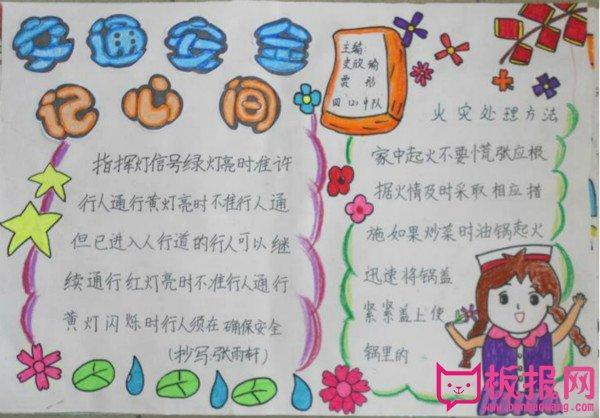 交通安全
记心间
主编:
史欣瑜
贾彤
四(2)中队
指挥灯信号绿灯亮时准许
行人通行黄灯亮时不准行人通
但已进入人行道的行人可以继
续通行红灯亮时不准行人通行
黄灯闪烁时行人须在确保安全
(抄写:张雨轩)
火灾处理方法
家中起火不要慌张应根
据火情及时采取相应措
施如果炒菜时油锅起火
迅速将锅盖
紧紧盖上使
锅里的
板报网
www.banbaowang.com